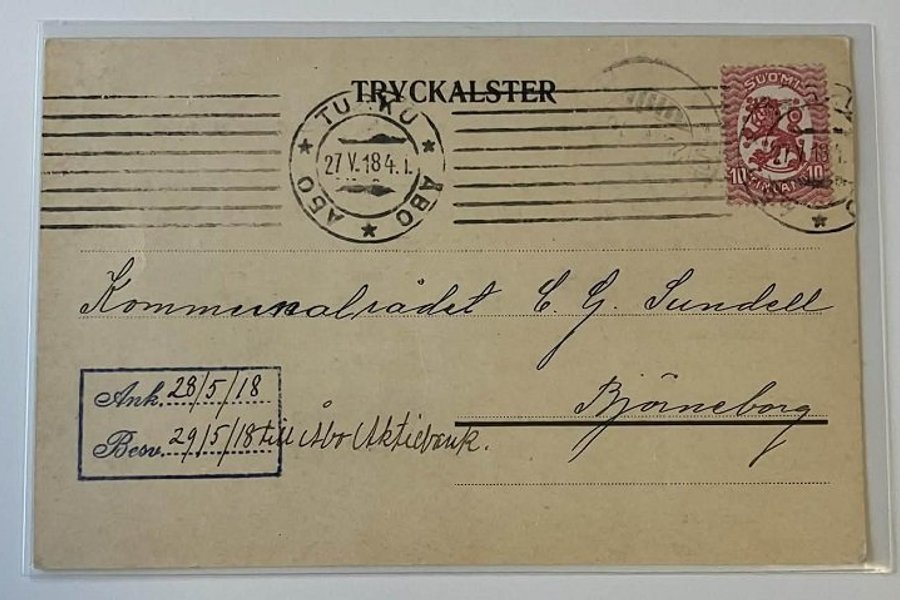 TRYCKALSTER
TURKU
27 V.18 4.I.
ÅBO ÅBO
SUOMI
10 10
FINLAND
Kommunalrådet C. G. Sundell
Björneborg
Ank. 28/5/18
Besv. 29/5/18 till Åbo Aktiebank.